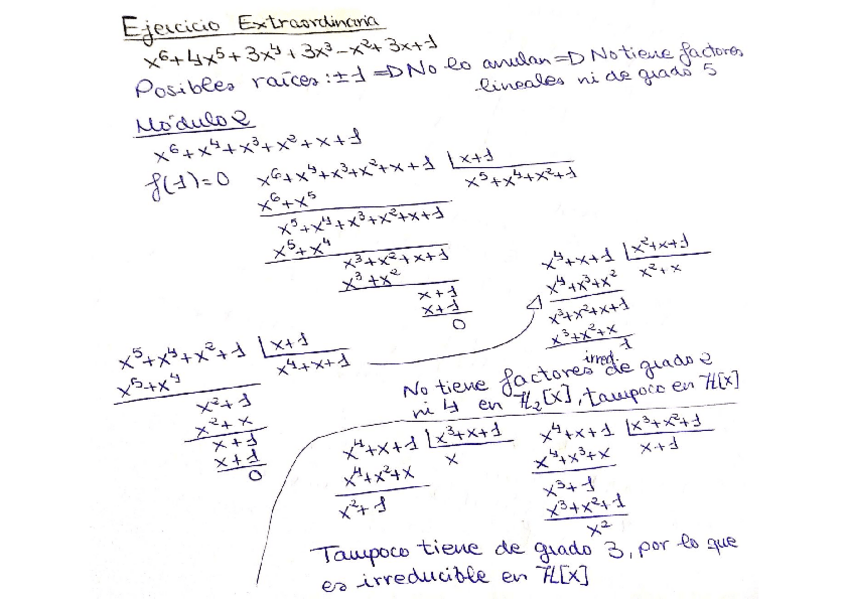 Ejercicio Extraordinaria
x⁶+4x⁵+3x⁴+3x³-x²+3x+1
Posibles raíces: ±1 => No lo anulan => No tiene factores
lineales ni de grado 5
Módulo 2
x⁶+x⁴+x³+x²+x+1
f(1)=0
x⁶+x⁴+x³+x²+x+1 | x+1
x⁶+x⁵
x⁵+x⁴+x²+1
x⁵+x⁴+x³+x²+x+1
x⁵+x⁴
x³+x²+x+1
x³+x²
x+1
x+1
0
x⁵+x⁴+x²+1 | x+1
x⁵+x⁴
x⁴+x+1
x²+1
x²+x
x+1
x+1
0
x⁴+x+1 | x²+x+1
x⁴+x³+x²
x²+x
x³+x²+x+1
x³+x²+x
1
No tiene factores irred. de grado 2
ni 4 en ℤ₂[x], tampoco en ℤ[x]
x⁴+x+1 | x³+x+1
x⁴+x²+x
x
x²+1
x⁴+x+1 | x³+x²+1
x⁴+x³+x
x+1
x³+1
x³+x²+1
x²
Tampoco tiene de grado 3, por lo que
es irreducible en ℤ[x]